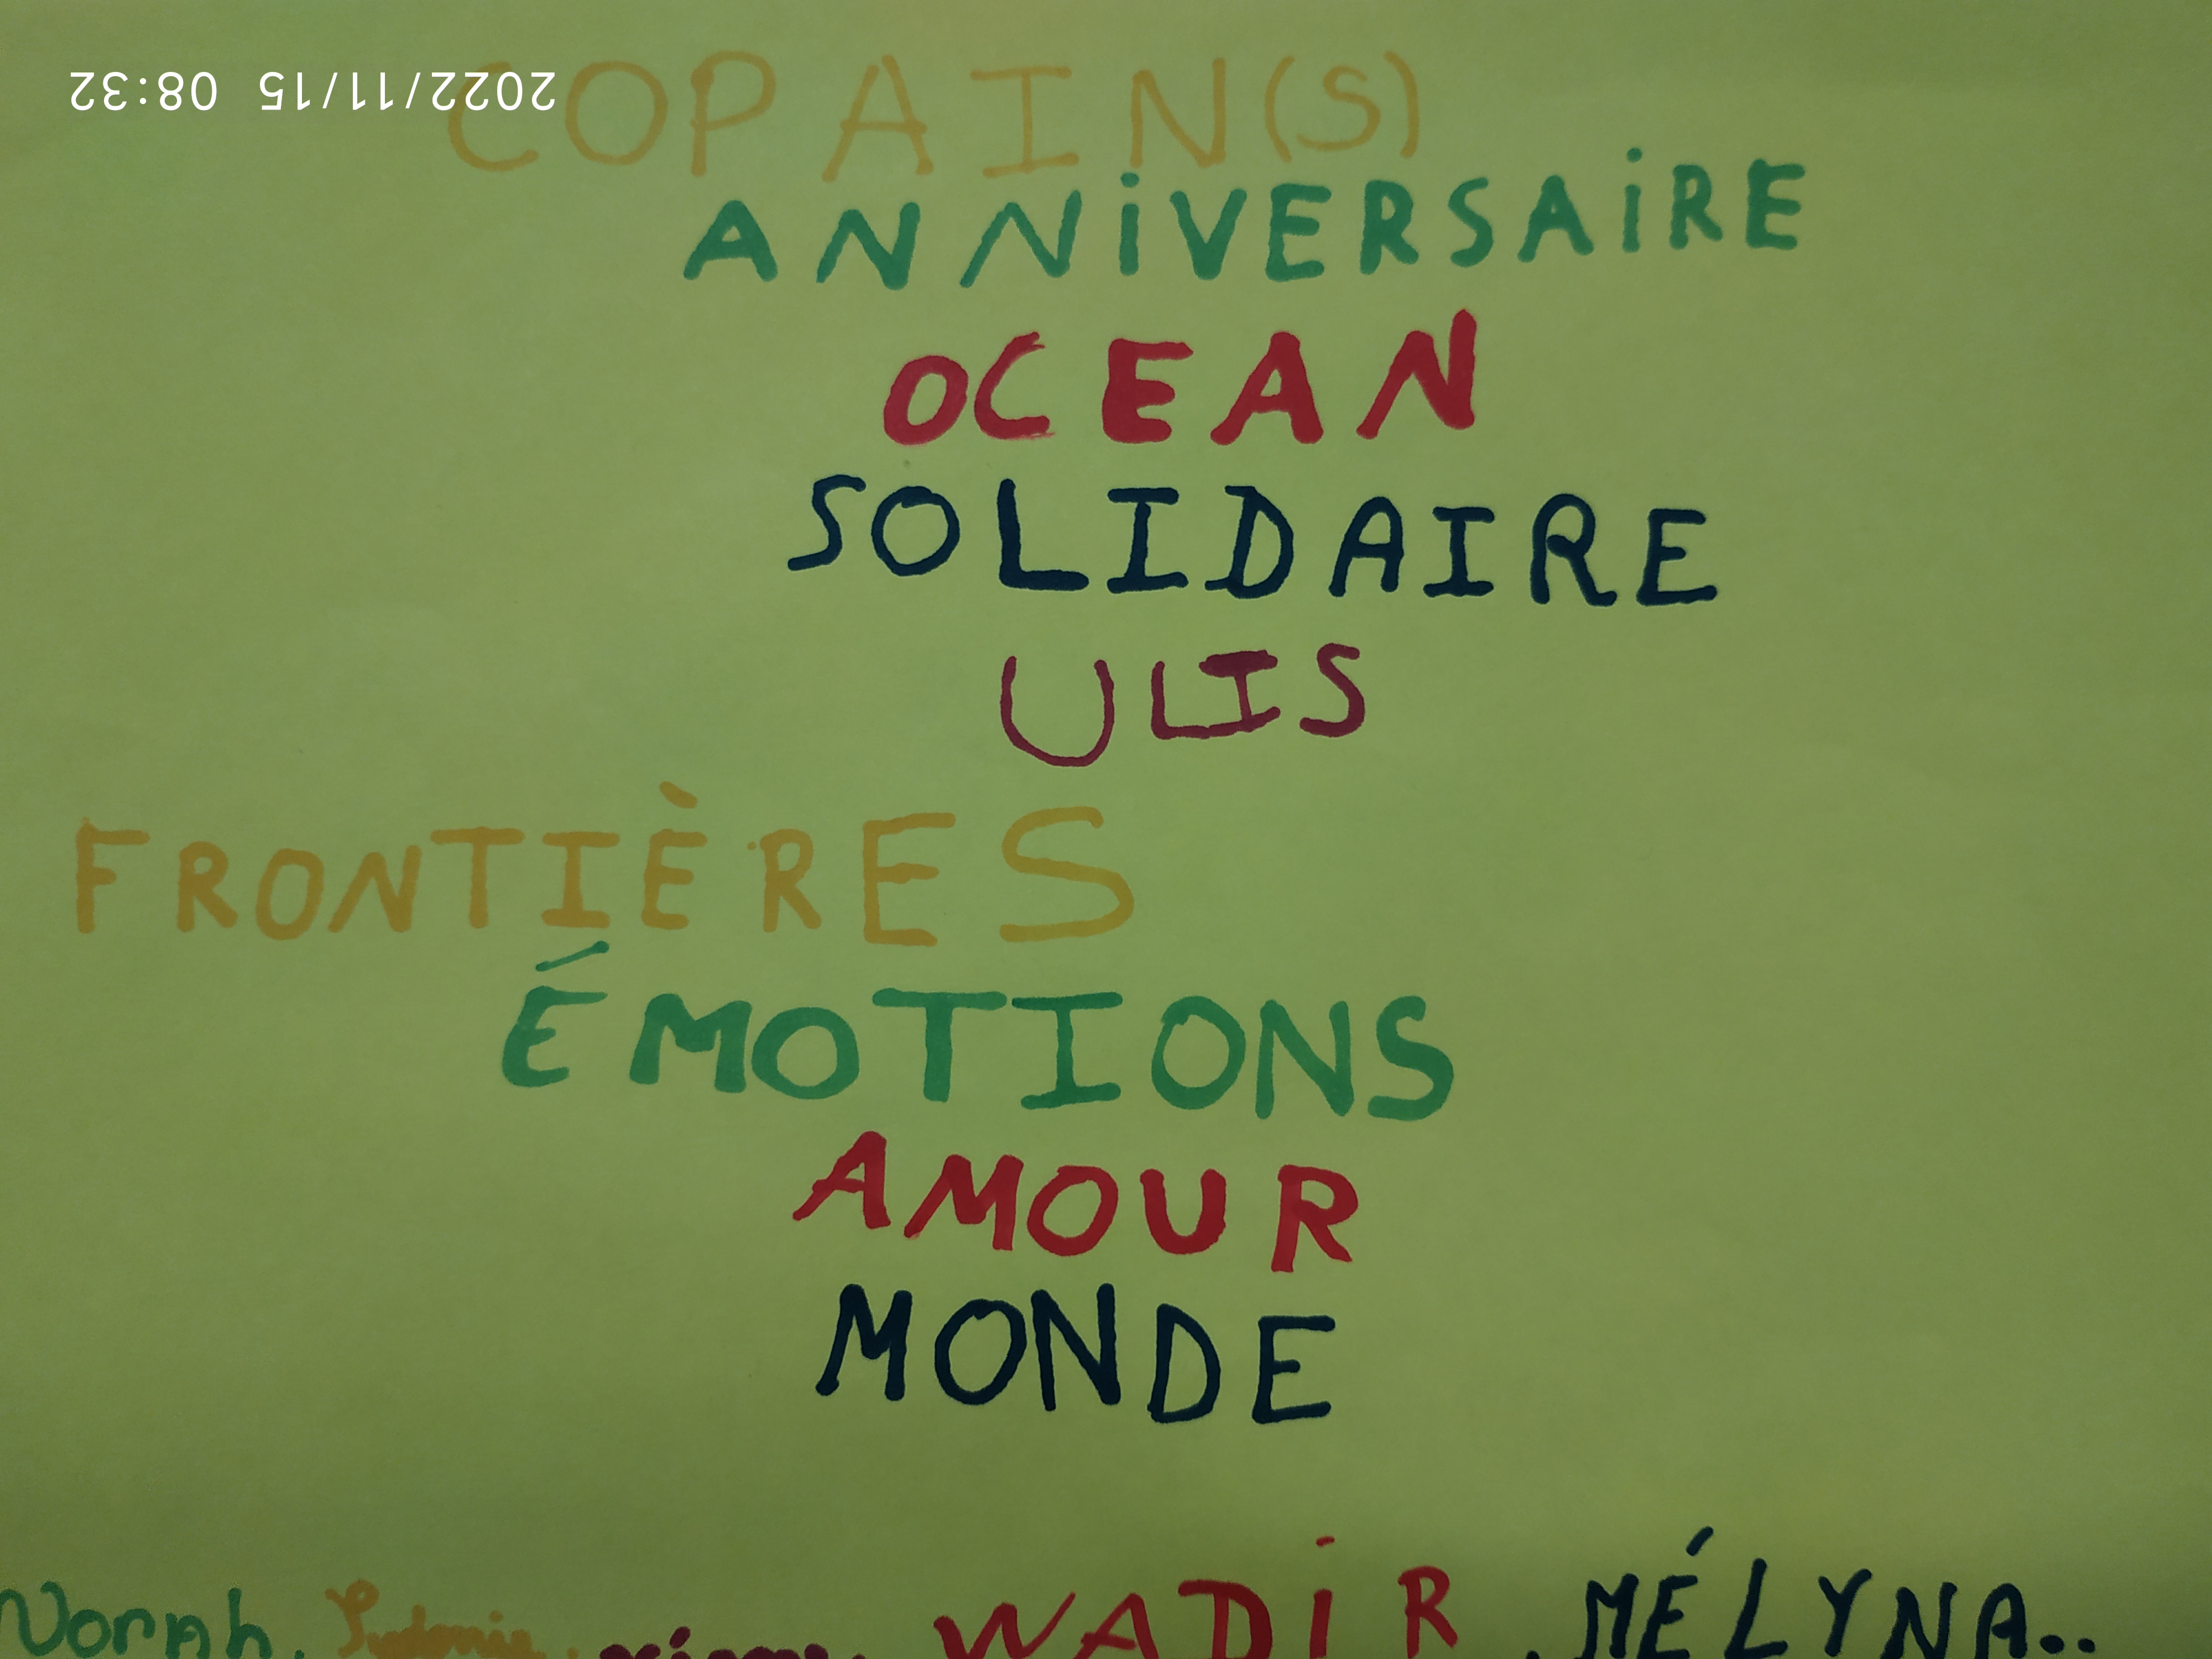 2022/11/15 08:32
COPAIN(S)
ANNiVERSAiRE
OCEAN
SOLIDAIRE
ULIS
FRONTIÈRES
ÉMOTIONS
AMOUR
MONDE
Norah, WADiR, MÉLYNA..